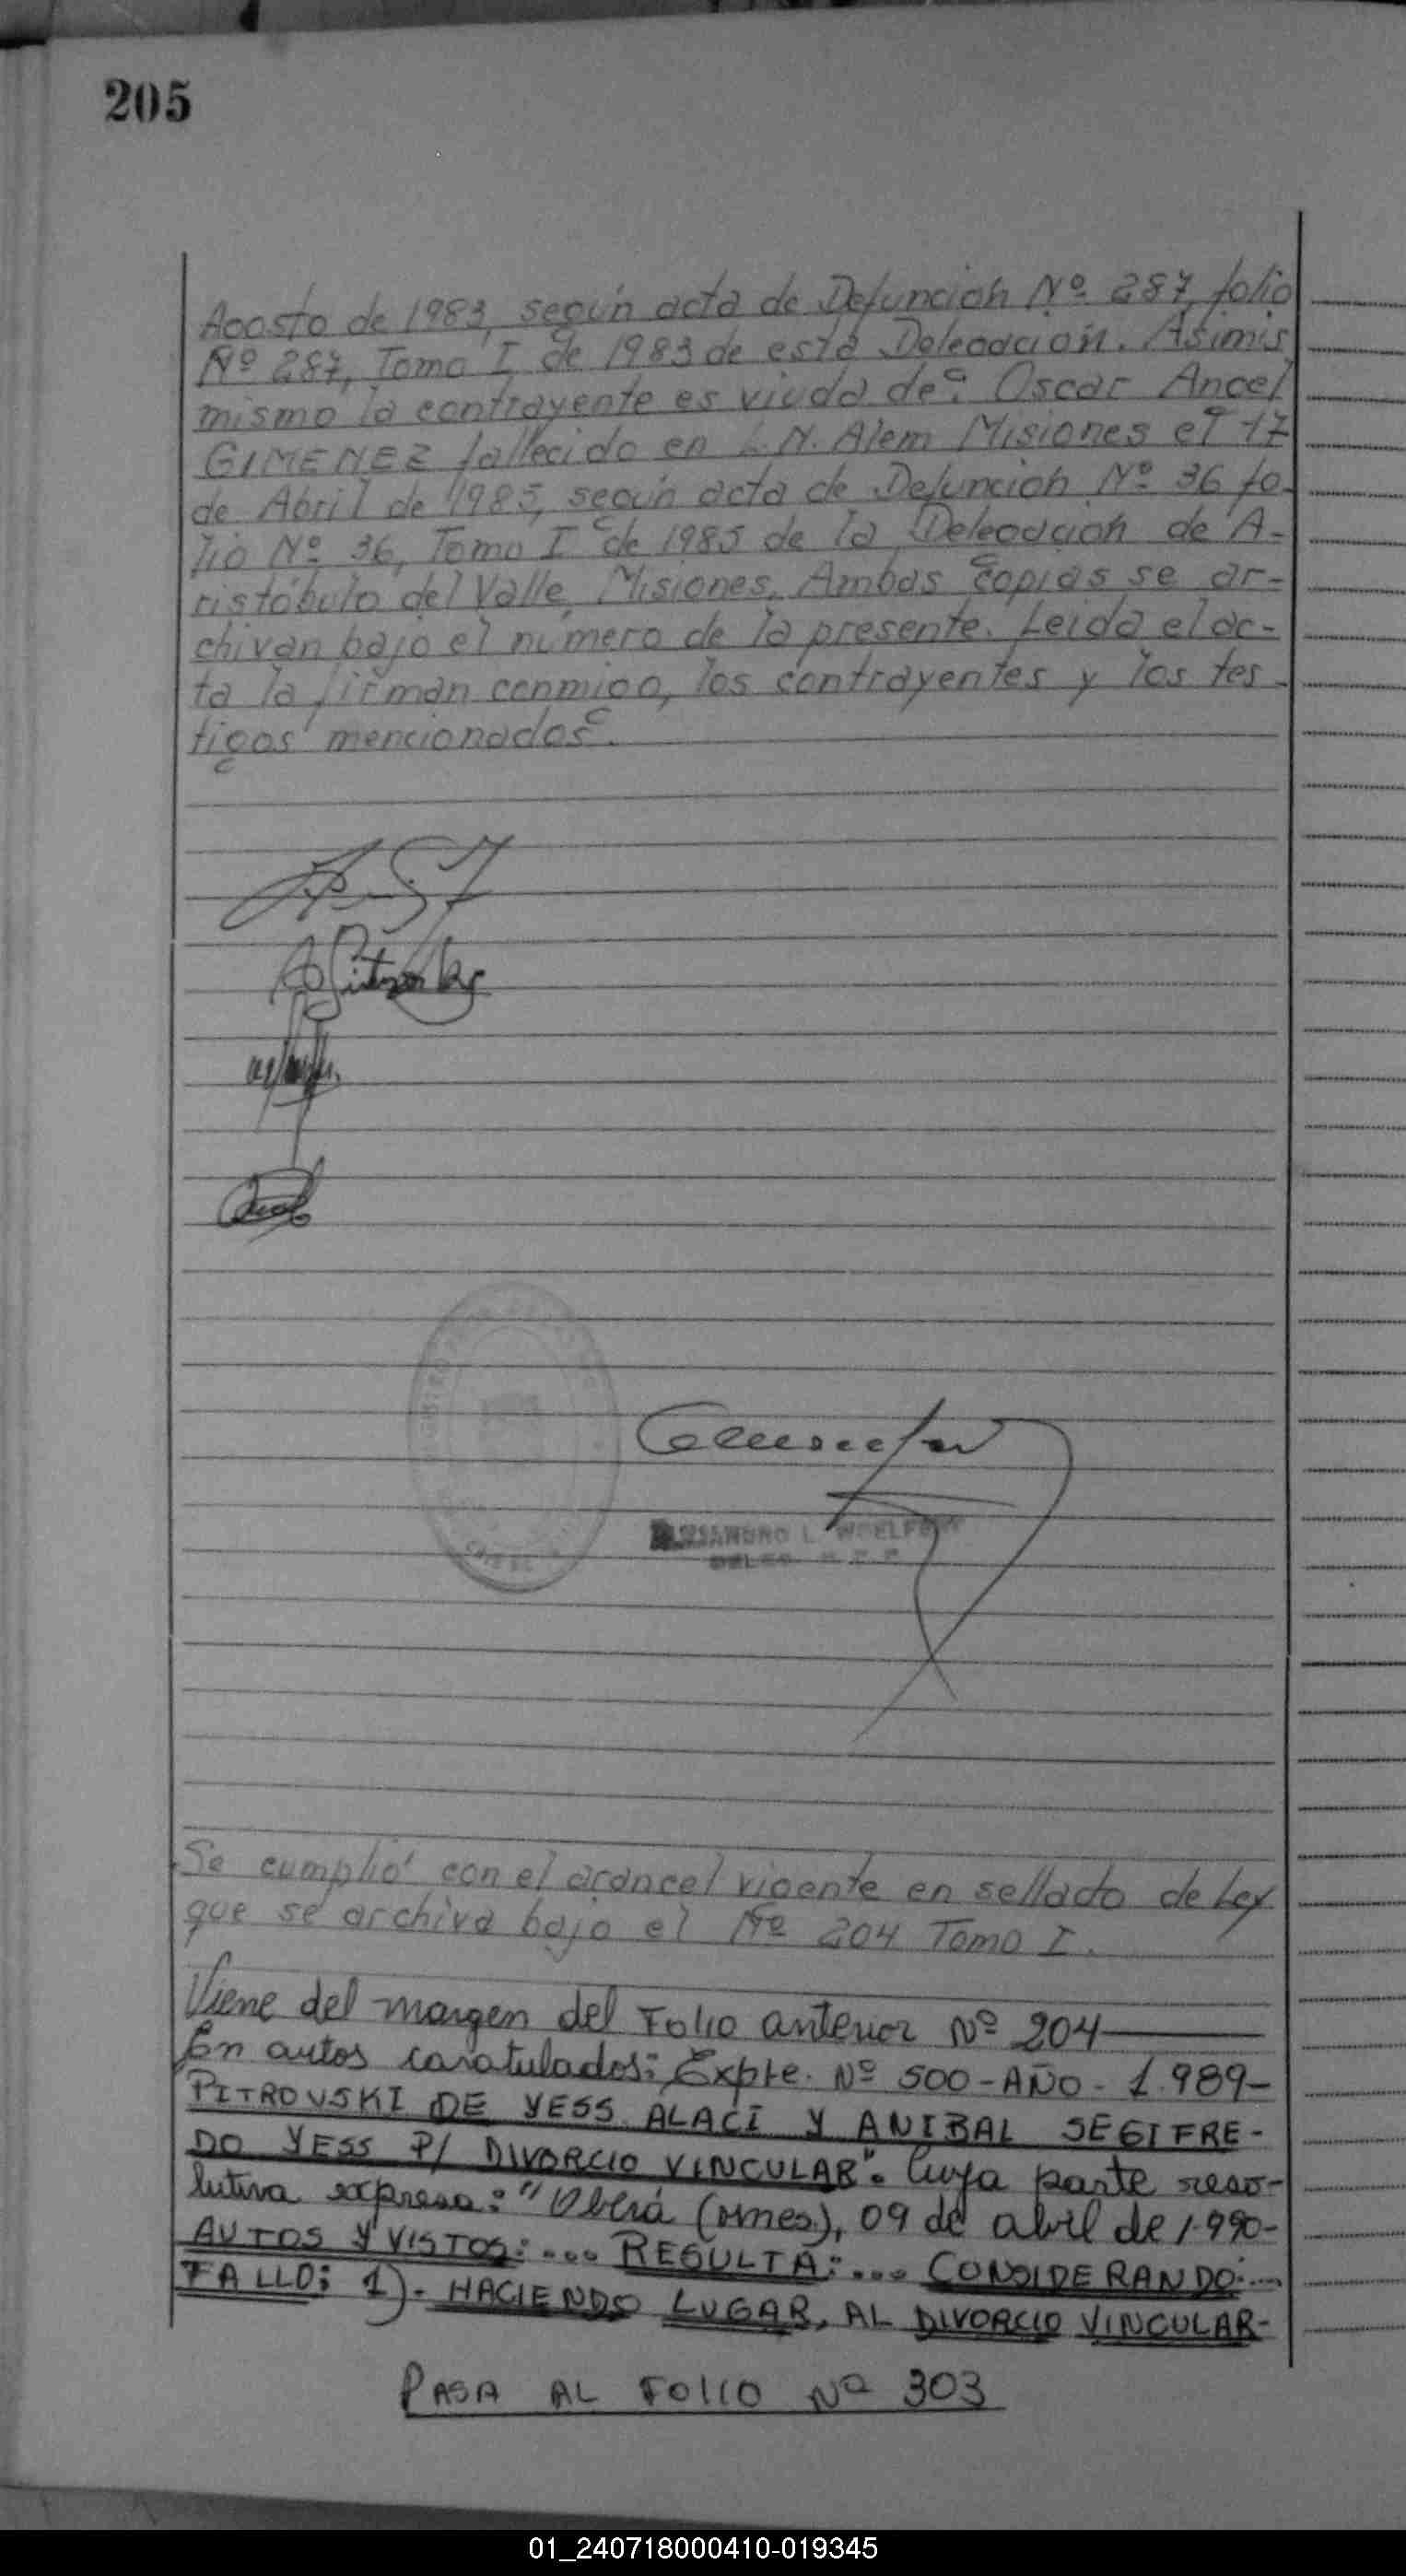 205
Agosto de 1983, según acta de Defunción Nº 287, folio
Nº 287, Tomo I de 1983 de esta Delegación. Asimis
mismo la contrayente es viuda de: Oscar Angel
GIMENEZ fallecido en L.N. Alem Misiones el 17
de Abril de 1985, según acta de Defunción Nº 36 fo-
lio Nº 36, Tomo I de 1985 de la Delegación de A-
ristóbulo del Valle, Misiones. Ambas copias se ar-
chivan bajo el número de la presente. Leida el ac-
ta la firman conmigo, los contrayentes y los tes-
tigos mencionados.
Se cumplió con el arancel vigente en sellado de Ley
que se archiva bajo el Nº 204 Tomo I.
Viene del margen del Folio anterior Nº 204
En autos caratulados: Expte. Nº 500-AÑO-1.989-
PITROVSKI DE YESS ALACI Y ANIBAL SEGIFRE-
DO YESS P/ DIVORCIO VINCULAR". Cuya parte reso-
lutiva expresa: "Oberá (Mnes), 09 de abril de 1.990-
AUTOS Y VISTOS:... RESULTA:... CONSIDERANDO:...
FALLO: 1).- HACIENDO LUGAR, AL DIVORCIO VINCULAR-
PASA AL FOLIO Nº 303
01_240718000410-019345